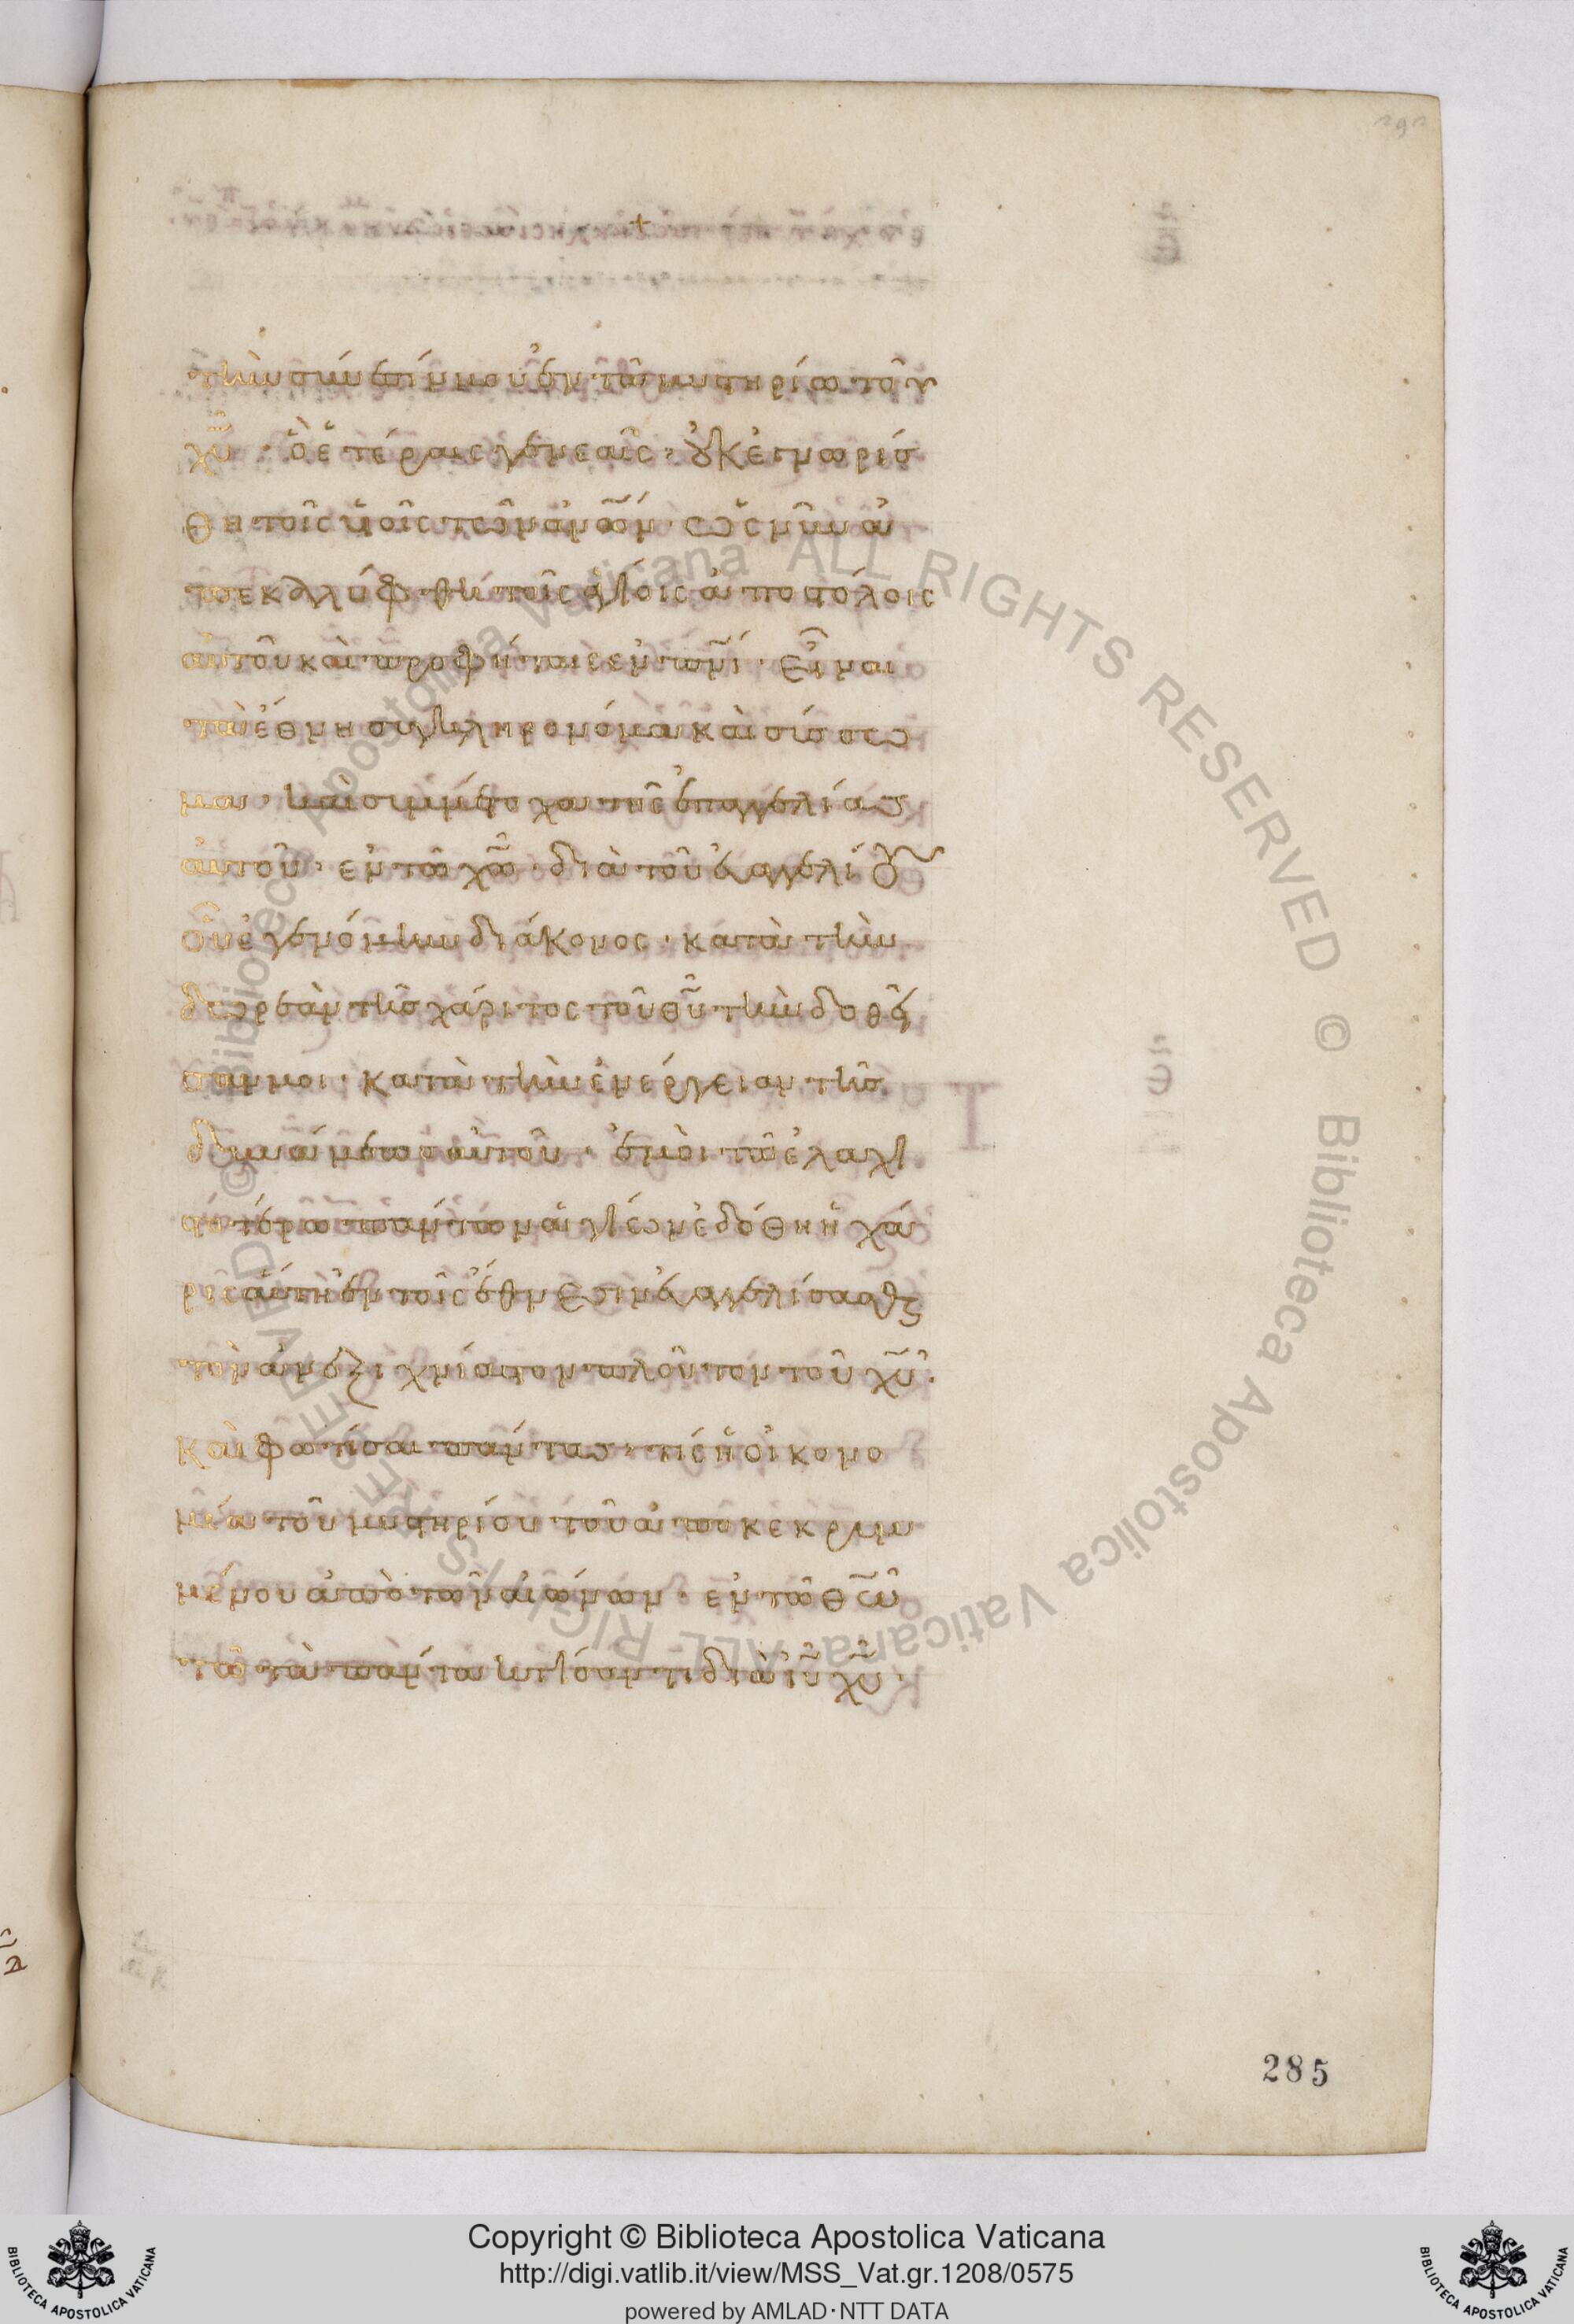 +
τὴν σύνεσίν μου ἐν τῶ μυστηρίω τοῦ
χ̅υ̅· ὃ ἑτέραις γενεαῖς· οὐκ ἐγνωρίσ
θη τοῖς υἱοῖς τῶν ἀν̅ω̅ν̅· ὡς νῦν ἀ
πεκαλύφθη τοῖς ἁγίοις ἀποστόλοις
αὐτοῦ καὶ προφήταις ἐν π̅ν̅ι̅· εἶναι
τὰ ἔθνη συγκληρονόμα καὶ σύσσω
μα· καὶ συμμέτοχα τῆς ἐπαγγελίας
αὐτοῦ· ἐν τῶ χ̅ω̅· διὰ τοῦ εὐαγγελίου
οὗ ἐγενόμην διάκονος· κατὰ τὴν
δωρεὰν τῆς χάριτος τοῦ θ̅υ̅ τὴν δοθεῖ
σαν μοι· κατὰ τὴν ἐνέργειαν τῆς
δυνάμεως αὐτοῦ· ἐμοὶ τῶ ἐλαχι
στοτέρω πάντων ἁγίων ἐδόθη ἡ χά
ρις αὕτη ἐν τοῖς ἔθνεσιν εὐαγγελίσασθαι
τὸν ἀνεξιχνίαστον πλοῦτον τοῦ χ̅υ̅·
καὶ φωτίσαι πάντας· τίς ἡ οἰκονο
μία τοῦ μυστηρίου τοῦ ἀποκεκρυμ
μένου ἀπὸ τῶν αἰώνων· ἐν τῶ θ̅ω̅
τῶ τὰ πάντα κτίσαντι διὰ ἰ̅υ̅ χ̅υ̅·
285
© Biblioteca Apostolica Vaticana ALL RIGHTS RESERVED © Biblioteca Apostolica Vaticana ALL RIGHTS RESERVED
BIBLIOTECA APOSTOLICA VATICANA
Copyright © Biblioteca Apostolica Vaticana
http://digi.vatlib.it/view/MSS_Vat.gr.1208/0575
powered by AMLAD·NTT DATA
BIBLIOTECA APOSTOLICA VATICANA